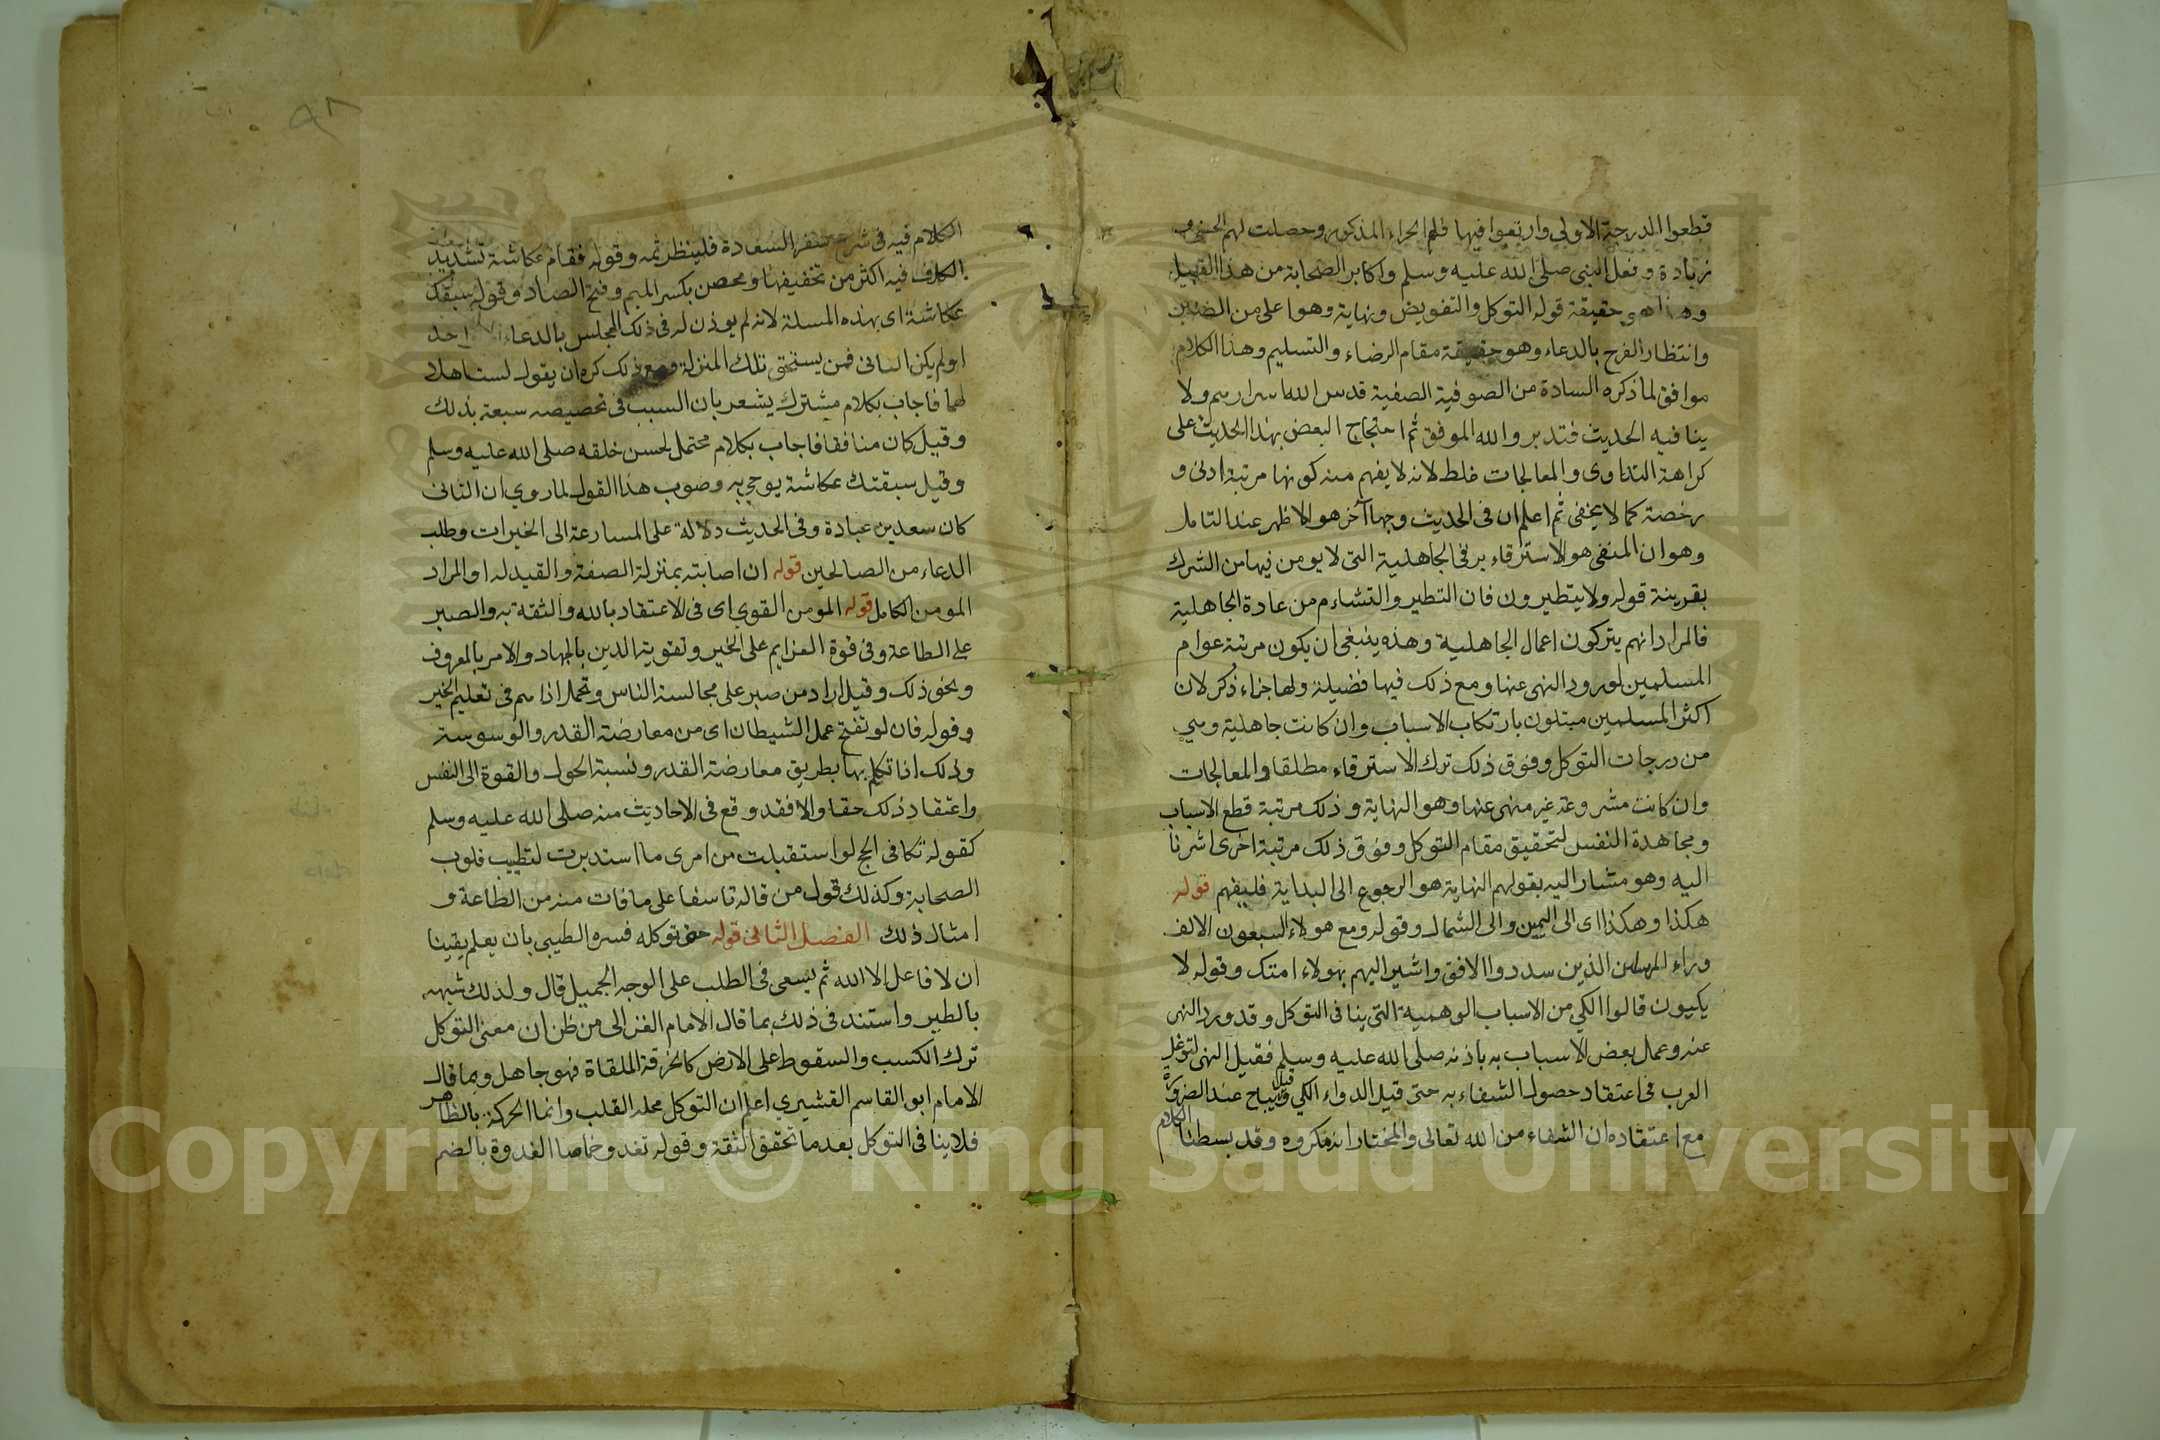 قطعوا الدرجة الاولي وارتقوا فيها فلهم الجزاء المذكور وحصلت لهم الحسنى و
زيادة وفعل النبي صلى الله عليه وسلم واكابر الصحابة من هذا القبيل
وهذا هو حقيقة قوله التوكل والتفويض ونهاية وهو اعلى من
وانتظار الفرج بالدعاء وهو حقيقة مقام الرضاء والتسليم وهذا الكلام
موافق لما ذكره السادة من الصوفية الصفية قدس الله اسرارهم ولا
ينافيه الحديث فتدبر والله الموفق ثم احتجاج البعض بهذا الحديث على
كراهة التداوى والمعالجات غلط لانه لا يفهم منه كونها مرتبة ادنى و
رخصة كما لا يخفى ثم اعلم ان فى الحديث وجها آخر هو الاظهر عند التامل
وهو ان المنفى هو الاسترقاء برقى الجاهلية التى لا يومن فيها من الشرك
بقرينة قوله ولا يتطيرون فان التطير والتشاءم من عادة الجاهلية
فالمراد انهم يتركون اعمال الجاهلية وهذه ينبغى ان يكون مرتبة عوام
المسلمين لورود النهى عنها ومع ذلك فيها فضيلة ولها جزاء ذكر لان
اكثر المسلمين مبتلون بارتكاب الاسباب وان كانت جاهلية وهي
من درجات التوكل وفوق ذلك ترك الاسترقاء مطلقا والمعالجات
وان كانت مشروعة غير منهى عنها وهو النهاية وذلك مرتبة قطع الاسباب
ومجاهدة النفس لتحقيق مقام التوكل وفوق ذلك مرتبة اخرى اشرنا
اليه وهو مشار اليه بقولهم النهاية هو الرجوع الى البداية فليفهم قوله
هكذا وهكذا اى الى اليمين والى الشمال وقوله ومع هولاء السبعون الالف
وراء الذين سدوا الافق واشير اليهم بهولاء امتك وقوله لا
يكتون قالوا الكي من الاسباب الوهمية التى ينافى التوكل وقد ورد النهى
عنه وعمل بعض الاسباب به باذنه صلى الله عليه وسلم فقيل النهى لتوغل
العرب فى اعتقاد حصول الشفاء به حتى قيل الدواء الكي وقيل يباح عند الضرورة
مع اعتقاده ان الشفاء من الله تعالى والمختار انه مكروه وقد بسطنا الكلام
الكلام فيه فى شرح سفر السعادة فلينظر ثمه وقوله فقام عكاشة تشديد
الكاف فيه اكثر من تخفيفها ومحصن بكسر الميم وفتح الصاد وقوله سبقك
عكاشة اى بهذه المسلة لانه لم يوذن له فى ذلك المجلس بالدعاء
او لم يكن الثانى فمن يستحق تلك المنزلة ومع ذلك كره ان يقول لست اهلا
لها فاجاب بكلام مشترك يشعر بان السبب فى تخصيصه سبعة بذلك
وقيل كان منافقا فاجاب بكلام محتمل لحسن خلقه صلى الله عليه وسلم
وقيل سبقتك عكاشة بوحي به وصوب هذا القول لما روي ان الثانى
كان سعد بن عبادة وفى الحديث دلالة على المسارعة الى الخيرات وطلب
الدعاء من الصالحين قوله ان اصابته بمنزلة الصفة والقيد له او المراد
المومن الكامل قوله المومن القوي اى فى الاعتقاد بالله والثقة به والصبر
على الطاعة وفى قوة العزايم على الخير وتقوية الدين بالجهاد والامر بالمعروف
ونحو ذلك وقيل اراد من صبر على مجالسة الناس وتحمل اذاهم فى تعليم الخير
وقوله فان لو تفتح عمل الشيطان اى من معارضة القدر والوسوسة
وذلك اذا تكلم بها بطريق معارضة القدر ونسبة الحول والقوة الى النفس
واعتقاد ذلك حقا والا فقد وقع فى الاحاديث منه صلى الله عليه وسلم
كقوله تكا فى الحج لو استقبلت من امرى ما استدبرت لتطيب قلوب
الصحابة وكذلك قول من قاله تاسفا على ما فات منه من الطاعة و
امثال ذلك الفصل الثانى قوله حق توكله فسره الطيبى بان يعلم يقينا
ان لا فاعل الا الله ثم يسعى فى الطلب على الوجه الجميل قال ولذلك شبهه
بالطير واستند فى ذلك بما قال الامام الغزالى من ظن ان معنى التوكل
ترك الكسب والسقوط على الارض كالخرقة الملقاة فهو جاهل وبما قال
الامام ابو القاسم القشيري اعلم ان التوكل محله القلب وانما الحركة بالظاهر
فلا ينافى التوكل بعد ما تحقق الثقة وقوله تغدو خماصا الغدوة بالضم
Copyright © King Saud University